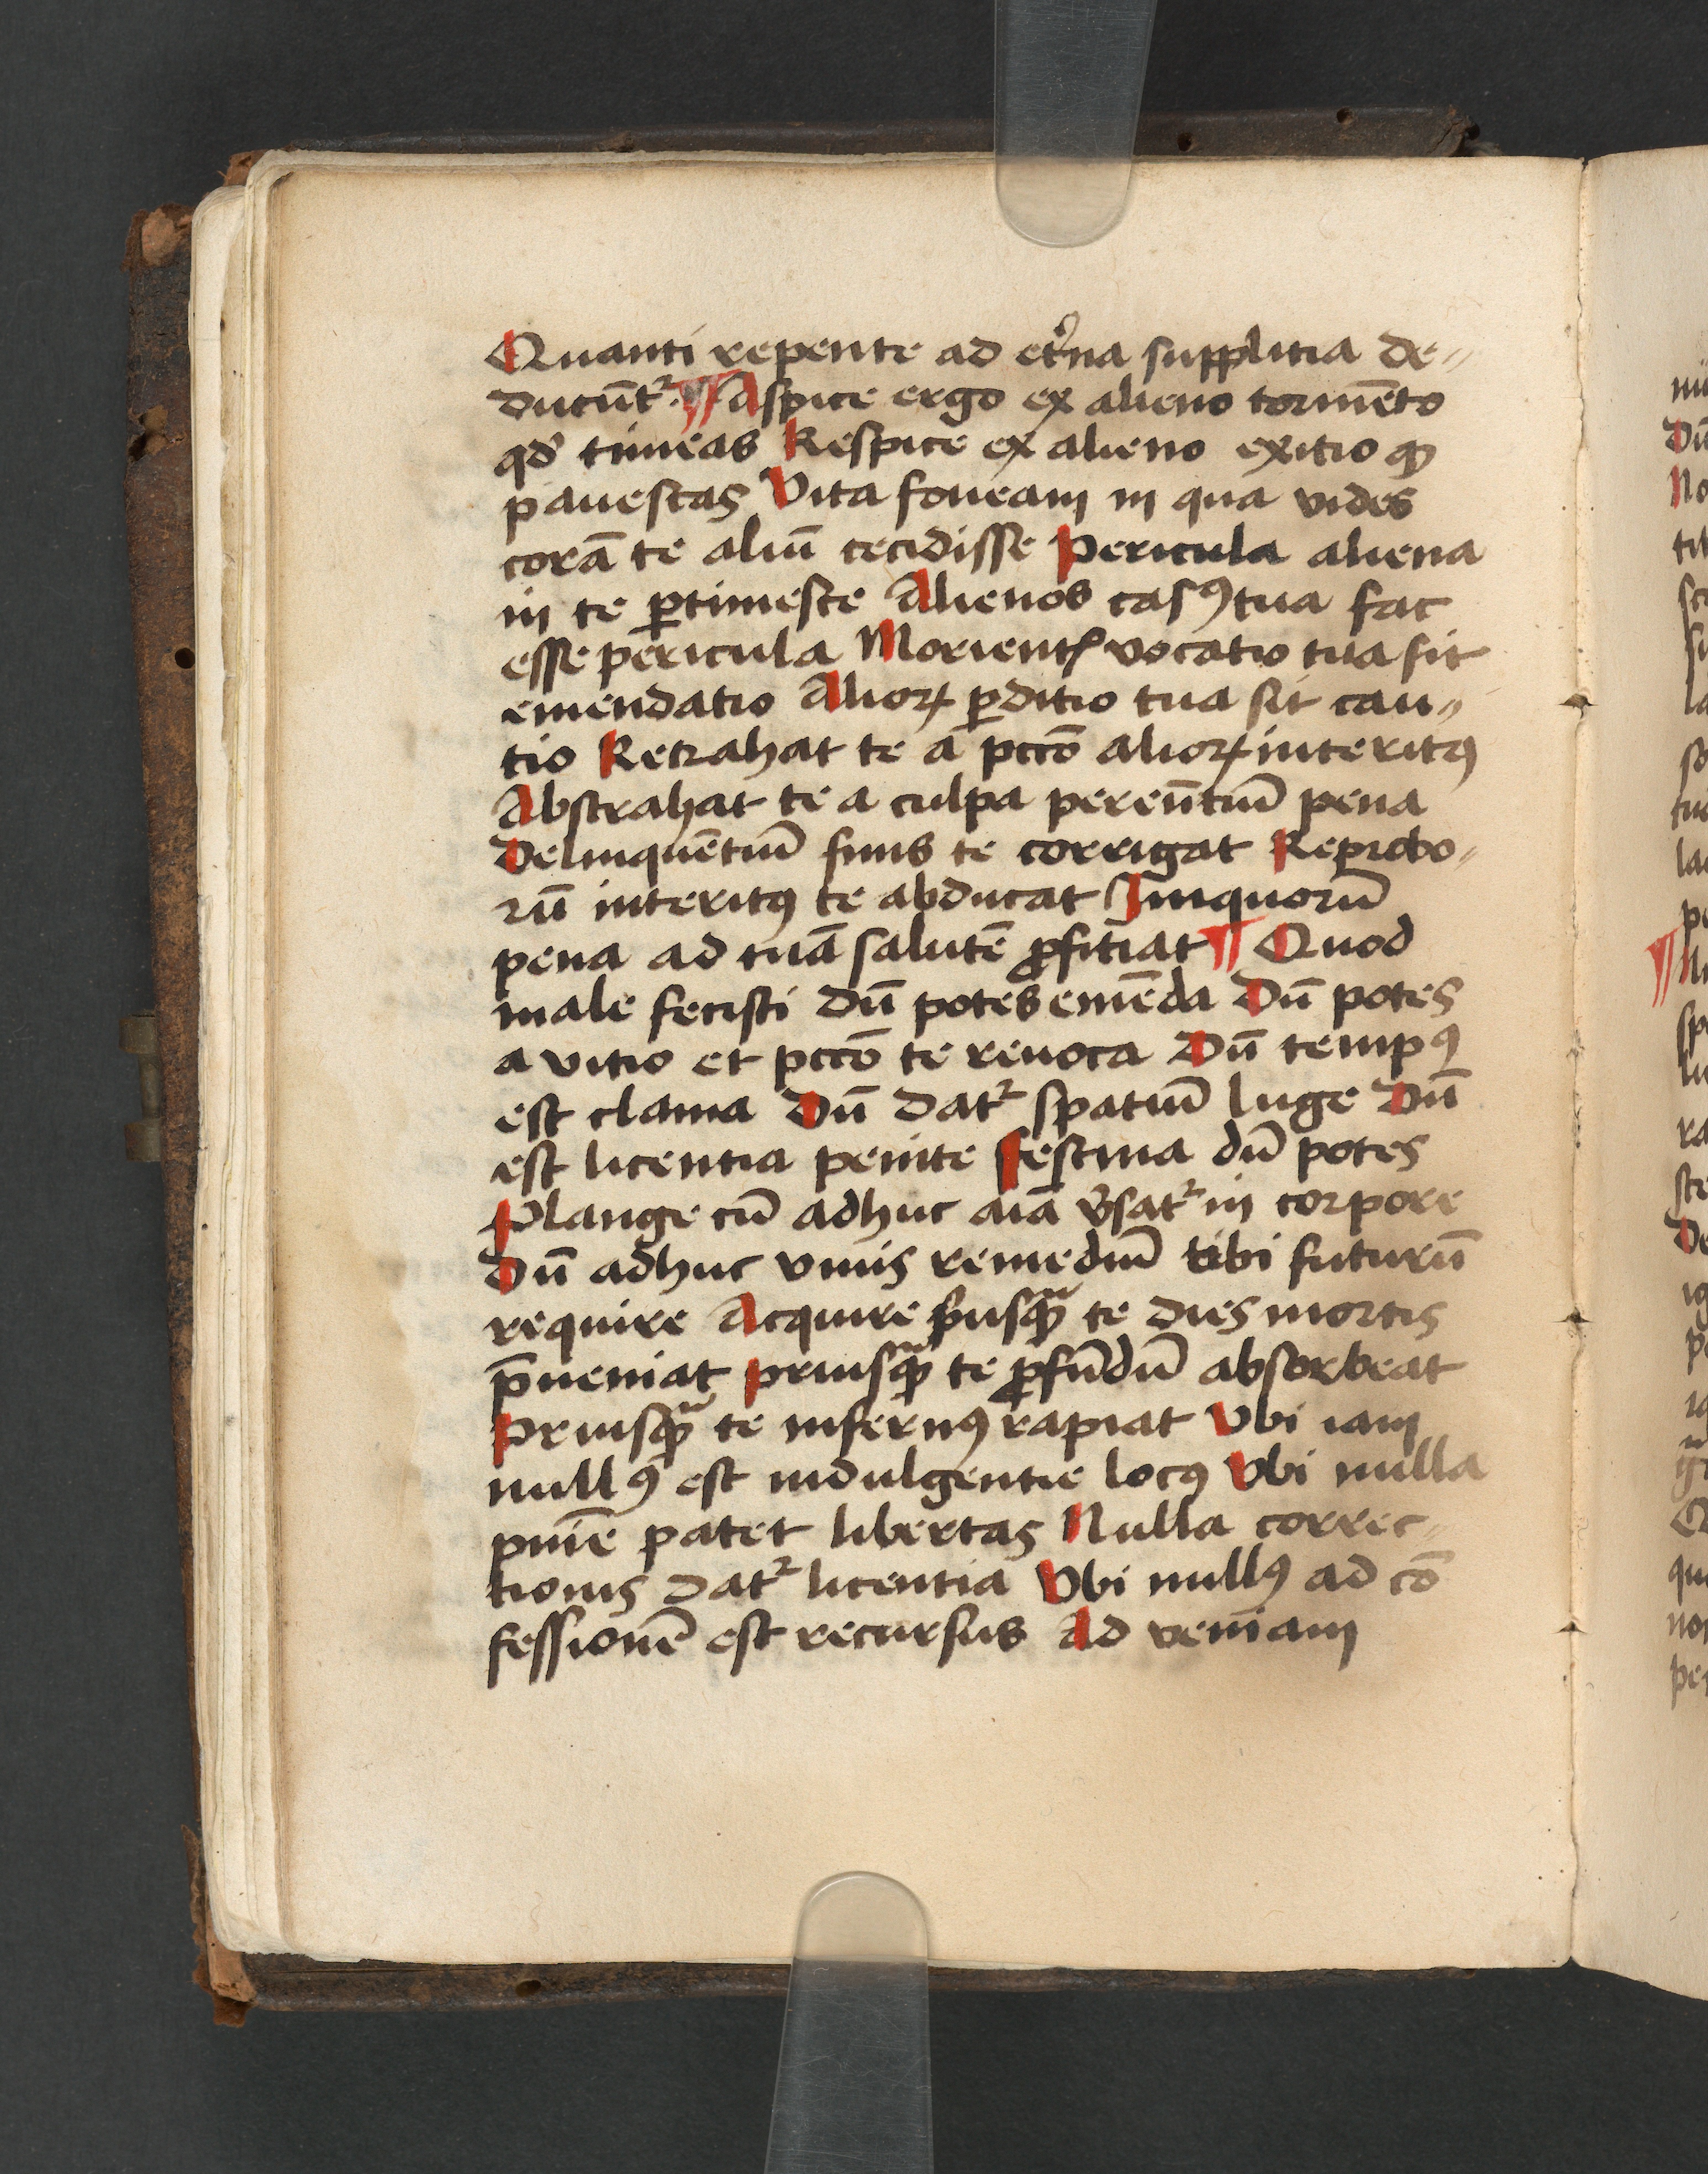 Quanti repente ad et̾na supplitia de〃
ducūtᷣ. ¶ Aspice ergo ex alieno tormēto
qd̾ timeas Respice ex alieno exitio qͩ
pauescas Vita foueam in qua vides
corā te aliū cecidisse Pericula aliena
in te ꝑtimesce Alienos casꝰ tua fac
esse pericula Morientꝭ vocatio tua sit
emendatio Alioꝝ ꝑditio tua sit cau〃
tio Retrahat te a pcc̄o alioꝝ interitꝰ
Abstrahat te a culpa pereūtiū pena
Delinquētiū finis te corrigat Reprobo〃
rū interitꝰ te abducat Iniquorū
pena ad tuā salutē ꝓficiat ¶ Quod
male fecisti dū potes emēda Dū potes
a vitio et pcc̄o te reuoca Dū tempꝰ
est clama Dū datᷣ spatiū luge Dū
est licentia penite Festina dū potes
Plange cū adhuc aīā v̾satᷣ in corpore
Dū adhuc viuis remediū tibi futurū
require Acquire p̾usqᷓ te dies mortis
p̄ueniat Priusqᷓ te ꝓfūdū absorbeat
Priusqᷓ te infernꝰ rapiat Vbi iam
nullꝰ est indulgentie locꝰ Vbi nulla
pnīe patet libertas Nulla correc〃
tionis datᷣ licentia Vbi nullꝰ ad cō
fessionē est recursus Ad veniam